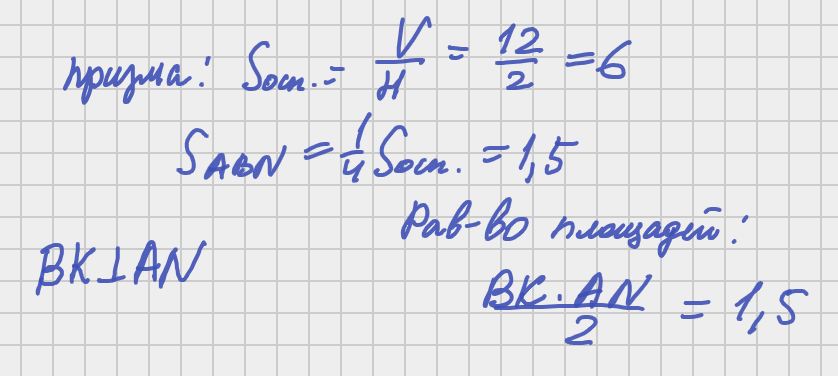 призма: Sосн. = V/H = 12/2 = 6
S_ABN = 1/4 Sосн. = 1,5
Рав-во площадей:
BK⊥AN
BK·AN/2 = 1,5